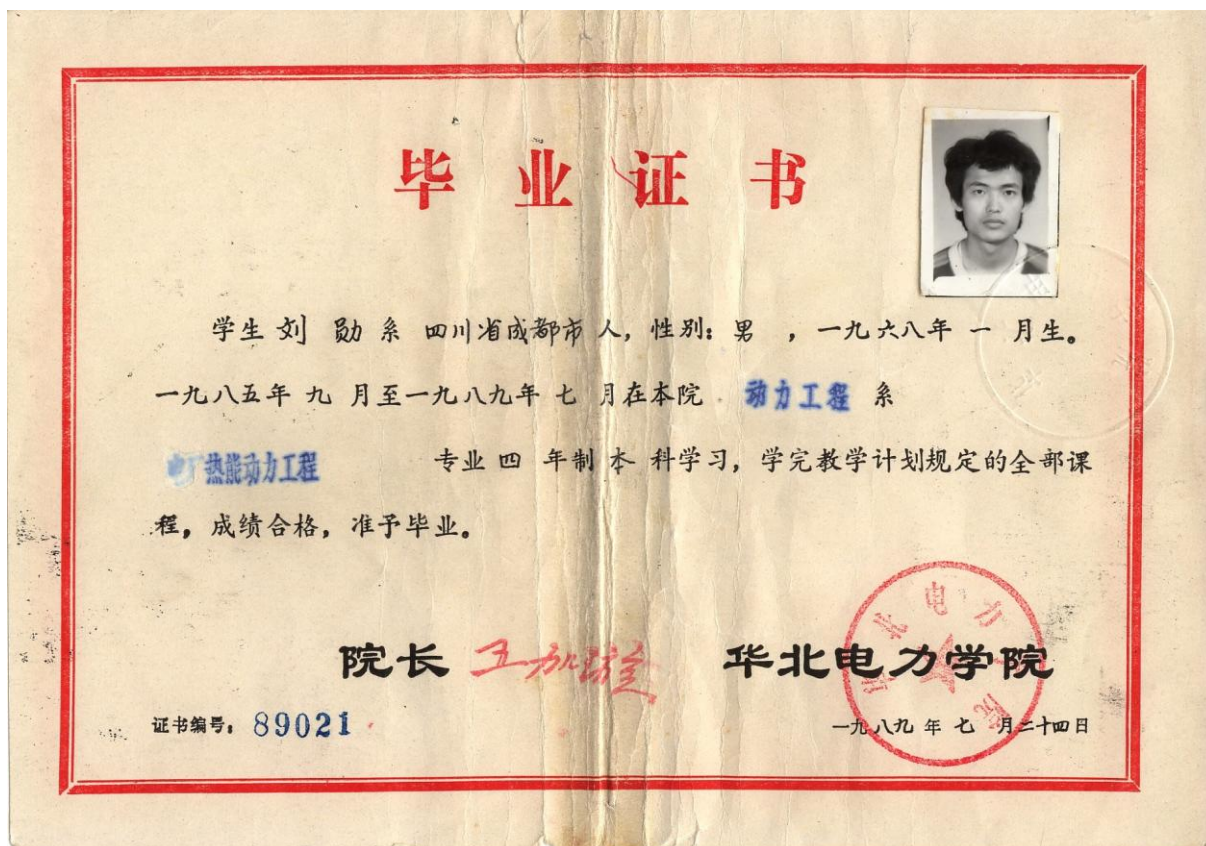 毕业证书
学生 刘 勋 系 四川省成都市 人，性别：男 ，一九六八年 一 月生。
一九八五年 九 月至一九八九年 七 月在本院 动力工程 系
电厂热能动力工程 专业 四 年制 本 科学习，学完教学计划规定的全部课
程，成绩合格，准予毕业。
院长 王加璇 华北电力学院
华北电力学院
证书编号：89021 一九八九年 七 月二十四日